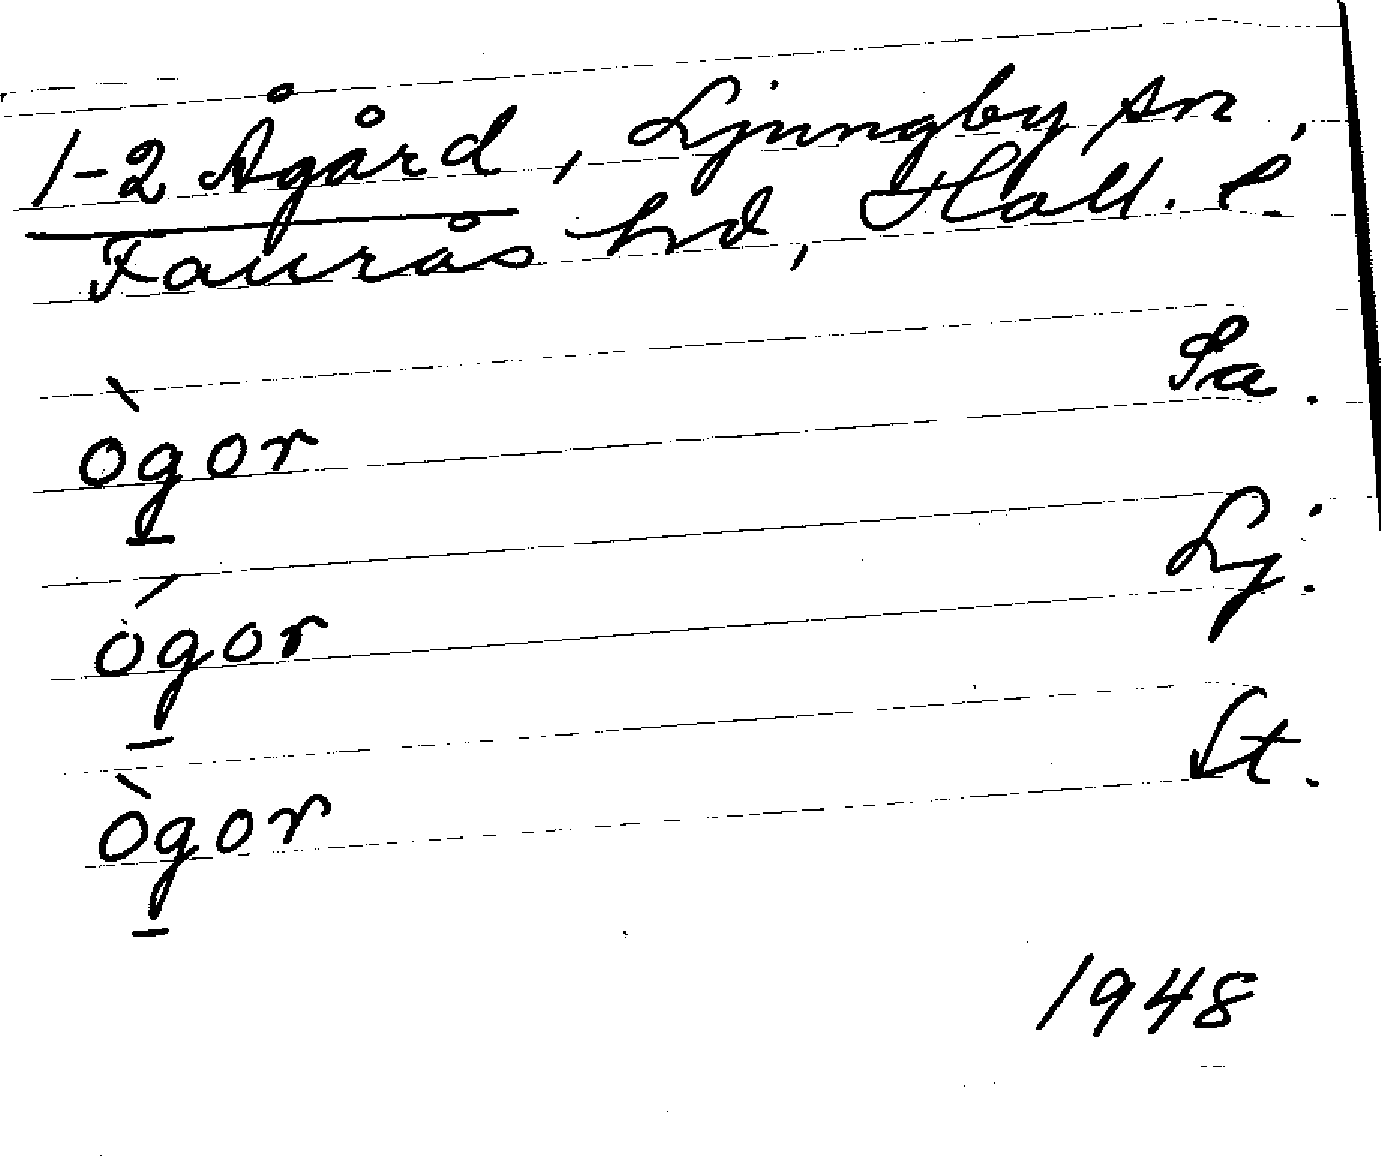 1-2 Ågård, Ljungby sn,
Faurås hd, Hall. l.
ògor Sa.
ógor Lj.
ògor St.
1948